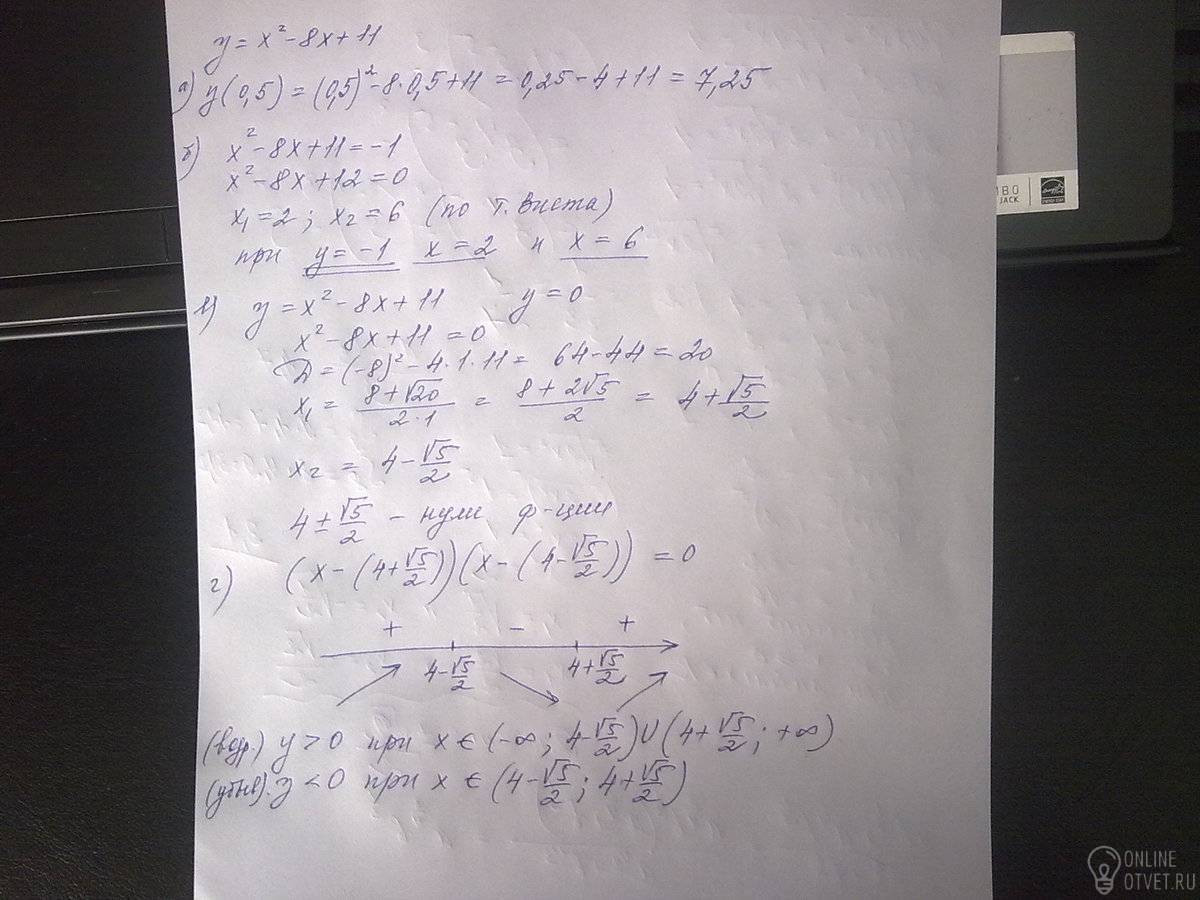 y = x² - 8x + 11
а) y(0,5) = (0,5)² - 8·0,5 + 11 = 0,25 - 4 + 11 = 7,25
б) x² - 8x + 11 = -1
x² - 8x + 12 = 0
x₁ = 2 ; x₂ = 6 (по т. Виета)
при y = -1 x = 2 и x = 6
в) y = x² - 8x + 11 y = 0
x² - 8x + 11 = 0
D = (-8)² - 4·1·11 = 64 - 44 = 20
x₁ = (8+√20)/(2·1) = (8+2√5)/2 = 4 + √5/2
x₂ = 4 - √5/2
4 ± √5/2 - нули ф-ции
г) (x - (4+√5/2))(x - (4-√5/2)) = 0
+ - +
4-√5/2 4+√5/2
(возр.) y > 0 при x ∈ (-∞ ; 4-√5/2) U (4+√5/2 ; +∞)
(убыв). y < 0 при x ∈ (4-√5/2 ; 4+√5/2)
JACK
ENERGY STAR
ONLINE
OTVET.RU